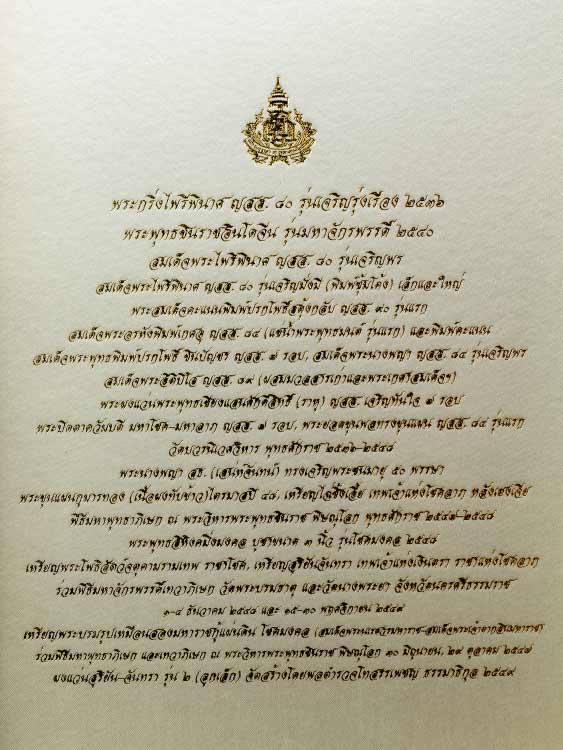 พระกริ่งไพรีพินาศ ญสส. ๘๐ รุ่นเจริญรุ่งเรือง ๒๕๓๖
พระพุทธชินราชอินโดจีน รุ่นมหาจักรพรรดิ์ ๒๕๔๐
สมเด็จพระไพรีพินาศ ญสส. ๘๐ รุ่นเจริญพร
สมเด็จพระไพรีพินาศ ญสส. ๘๐ รุ่นเจริญมั่งมี (พิมพ์ซุ้มโค้ง) เล็กและใหญ่
พระสมเด็จคะแนนพิมพ์ปรกโพธิ์สดุ้งกลับ ญสส. ๙๐ รุ่นแรก
สมเด็จพระอรหังพิมพ์เกศอุ ญสส. ๘๔ (แช่น้ำพระพุทธมนต์ รุ่นแรก) และพิมพ์คะแนน
สมเด็จพระพุทธพิมพ์ปรกโพธิ์ ชินบัญชร ญสส. ๗ รอบ, สมเด็จพระนางพญา ญสส. ๘๔ รุ่นเจริญพร
สมเด็จพระอิติปิโส ญสส. ๘๙ (ผสมมวลสารเก่าและพระเกศาสมเด็จฯ)
พระผงแว่นพระพุทธเชียงแสนศักดิ์สิทธิ์ (ราหู) ญสส. เจริญทันใจ ๗ รอบ
พระปิดตาควัมบดี มหาโชค-มหาลาภ ญสส. ๗ รอบ, พระยอดขุนพลทรงขุนแผน ญสส. ๘๔ รุ่นแรก
วัดบวรนิเวศวิหาร พุทธศักราช ๒๕๓๖-๒๕๔๘
พระนางพญา สธ. (เสน่ห์จันทน์) ทรงเจริญพระชนมายุ ๕๐ พรรษา
พระขุนแผนกุมารทอง (เนื้อผงทับข้าว) ไตรมาสปี ๔๘, เหรียญไฉ่ซิ้งเอี้ย เทพเจ้าแห่งโชคลาภ หลังเฮงเจีย
พิธีมหาพุทธาภิเษก ณ พระวิหารพระพุทธชินราช พิษณุโลก พุทธศักราช ๒๕๔๗-๒๕๔๘
พระพุทธสิหิงค์มิ่งมงคล บูชาขนาด ๓ นิ้ว รุ่นโชคมงคล ๒๕๔๘
เหรียญพระโพธิสัตว์จตุคามรามเทพ ราชาโชค, เหรียญสุริยันจันทรา เทพเจ้าแห่งเงินตรา ราชาแห่งโชคลาภ
ร่วมพิธีมหาจักรพรรดิ์เทวาภิเษก วัดพระบรมธาตุ และวัดนางพระยา จังหวัดนครศรีธรรมราช
๑-๔ ธันวาคม ๒๕๔๘ และ ๑๕-๓๐ พฤศจิกายน ๒๕๔๙
เหรียญพระบรมรูปเหมือนสองมหาราชกู้แผ่นดิน โชคมงคล (สมเด็จพระนเรศวรมหาราช-สมเด็จพระเจ้าตากสินมหาราช)
ร่วมพิธีมหาพุทธาภิเษก และเทวาภิเษก ณ พระวิหารพระพุทธชินราช พิษณุโลก ๓๐ มิถุนายน, ๒๙ ตุลาคม ๒๕๔๗
ผงแว่นสุริยัน-จันทรา รุ่น ๒ (ลูกเล็ก) จัดสร้างโดยพลตำรวจโทสรรเพชญ ธรรมาธิกุล ๒๕๔๙